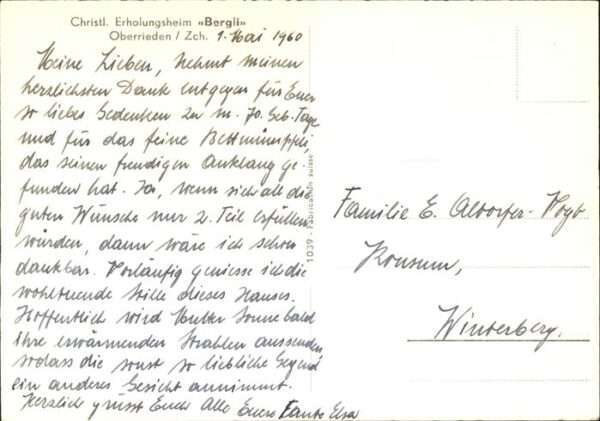 Christl. Erholungsheim «Bergli»
Oberrieden / Zch. 1. Mai 1960
Meine Lieben, Nehmt meinen
herzlichsten Dank entgegen für Euer
so liebes Gedenken zu m. 70. Geb. Tage
und für das feine
das seinen freudigen Anklang ge-
funden hat. Ja, wenn sich all die
guten Wünsche nur z. Teil erfüllen
würden, dann wäre ich schon
dankbar. Vorläufig geniesse ich die
wohltuende Stille dieses Hauses.
Hoffentlich wird Mutter Sonne bald
ihre erwärmenden Strahlen aussenden
sodass die sonst so liebliche Gegend
ein anderes Gesicht annimmt.
Herzlich grüsst Euch Alle Eure Tante Elsa
1039 - Fabrication suisse
Familie E. Altorfer-Vogt
Konsum,
Winterberg.